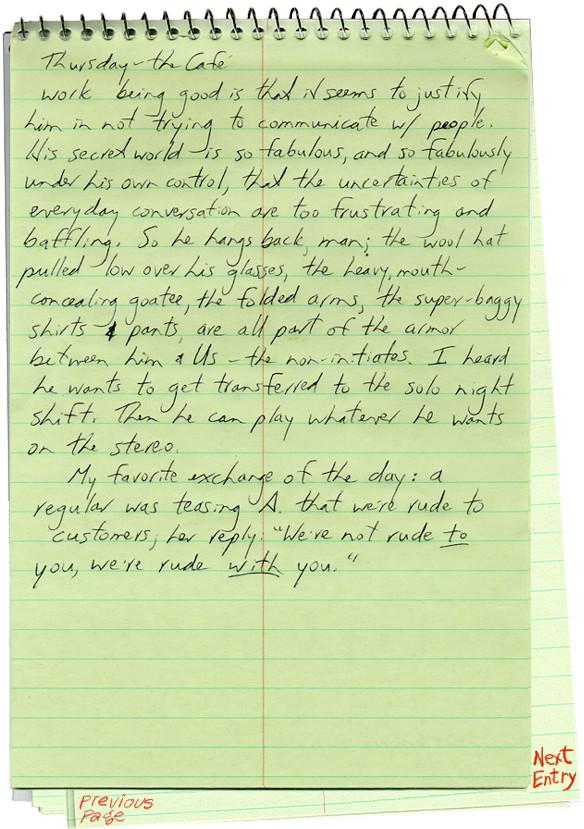 Thursday - the Café
work being good is that it seems to justify
him in not trying to communicate w/ people.
His secret world is so fabulous, and so fabulously
under his own control, that the uncertainties of
everyday conversation are too frustrating and
baffling. So he hangs back, man; the wool hat
pulled low over his glasses, the heavy, mouth-
concealing goatee, the folded arms, the super-baggy
shirts & pants, are all part of the armor
between him & Us - the non-initiates. I heard
he wants to get transferred to the solo night
shift. Then he can play whatever he wants
on the stereo.
My favorite exchange of the day: a
regular was teasing A. that we're rude to
customers; her reply: "We're not rude to
you, we're rude with you."
Next
Entry
Previous
Page